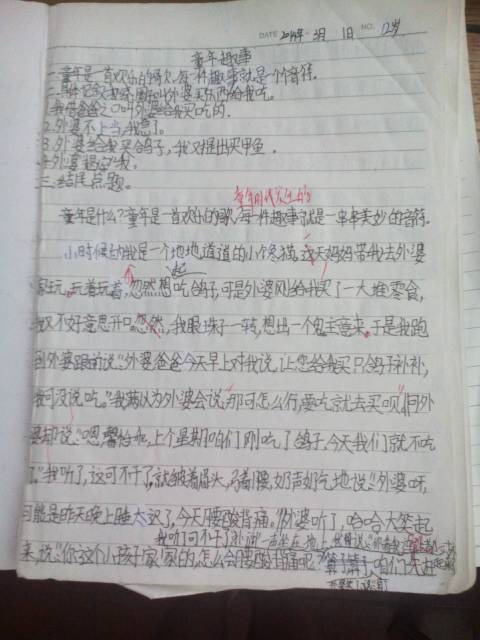 DATE 2014年 3月 1日 NO. 12岁
童年趣事
一.童年是一首欢乐的歌,每一件趣事就是一个音符.
1.我借爸爸之口叫外婆给我买吃的.
2.外婆不上当,我急了.
3.外婆给我买鸽子,我又提出买甲鱼.
三.结尾点题。
童年时代发生的
童年是什么?童年是一首欢乐的歌,每一件趣事就是一串串美妙的音符.
小时候的我是一个地地道道的小馋猫,这天妈妈带我去外婆
家玩。玩着玩着,忽然想吃鸽子,可是外婆刚给我买了一大堆零食,
我又不好意思开口。忽然,我眼珠子一转,想出一个鬼主意来。于是我跑
到外婆跟前说:"外婆爸爸今天早上对我说,让您给我买只鸽子补补,
我可没说吃。"我满以为外婆会说:"那可怎么行,要吃就去买呗"。可外
婆却说:"嗯,馨怡乖,上个星期咱们刚吃了鸽子,今天我们就不吃
了。"我听了,这可不干了,就皱着眉头,弯着腰,奶声奶气地说:"外婆呀,
可能是昨天晚上睡太迟了,今天腰酸背痛。"外婆听了,哈哈大笑起
来,说:"你这个小孩子家家的怎么会腰酸背痛呢?算了算了,咱们一天赶